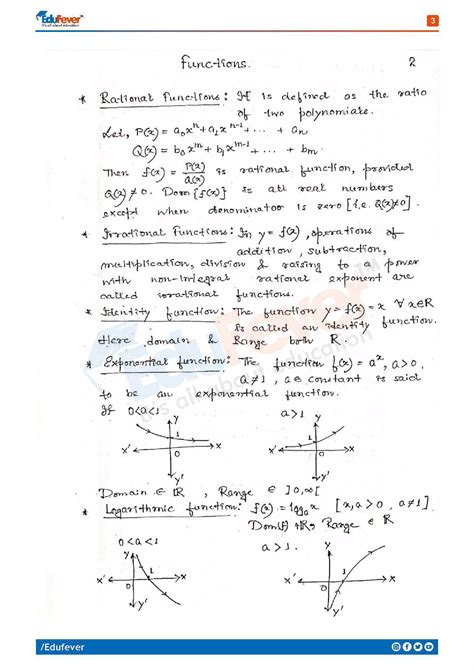 EduFever
It's all about education
3
Functions.
2
* Rational Functions: It is defined as the ratio
of two polynomials.
Let, P(x) = a₀xⁿ + a₁xⁿ⁻¹ + ... + aₙ
Q(x) = b₀xᵐ + b₁xᵐ⁻¹ + ... + bₘ
Then f(x) = P(x)/Q(x) is rational function, provided
Q(x) ≠ 0. Dom{f(x)} is all real numbers
except when denominator is zero [i.e. Q(x)≠0].
* Irrational Functions: In y = f(x), operations of
addition, subtraction,
multiplication, division & raising to a power
with non-integral rational exponent are
called irrational functions.
* Identity function: The function y = f(x) = x ∀ x∈R
is called an identity function.
Here domain & Range both R.
* Exponential function: The function f(x) = aˣ, a>0,
a≠1, a∈constant is said
to be an exponential function.
If 0<a<1 a>1
y y
1 1
x' 0 x x' 0 x
y' y'
Domain ∈ R, Range ∈ ]0,∞[
* Logarithmic function: f(x) = logₐx [x,a>0, a≠1]
Dom(f) Range ∈ R
0<a<1 a>1.
y y
x' 0 1 x x' 0 1 x
y' y'
EduFever™
It's all about education
/Edufever